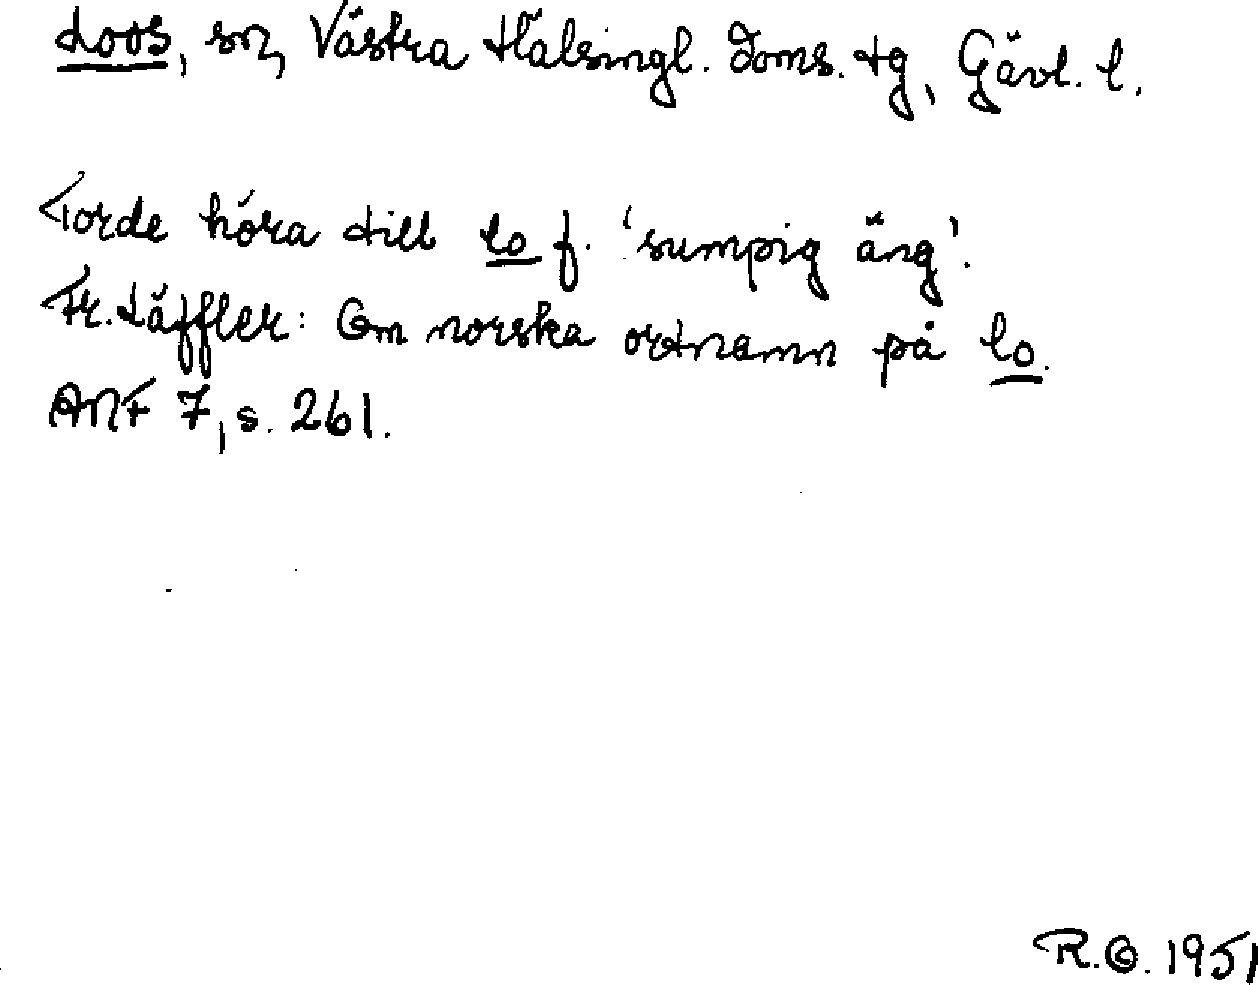 Loos, sn, Västra Hälsingl. doms. tg, Gävl. l.
Torde höra till lo f. 'sumpig äng'.
Fr. Läffler: Om norska ortnamn på lo.
ANF 7, s. 261.
R.G. 1951